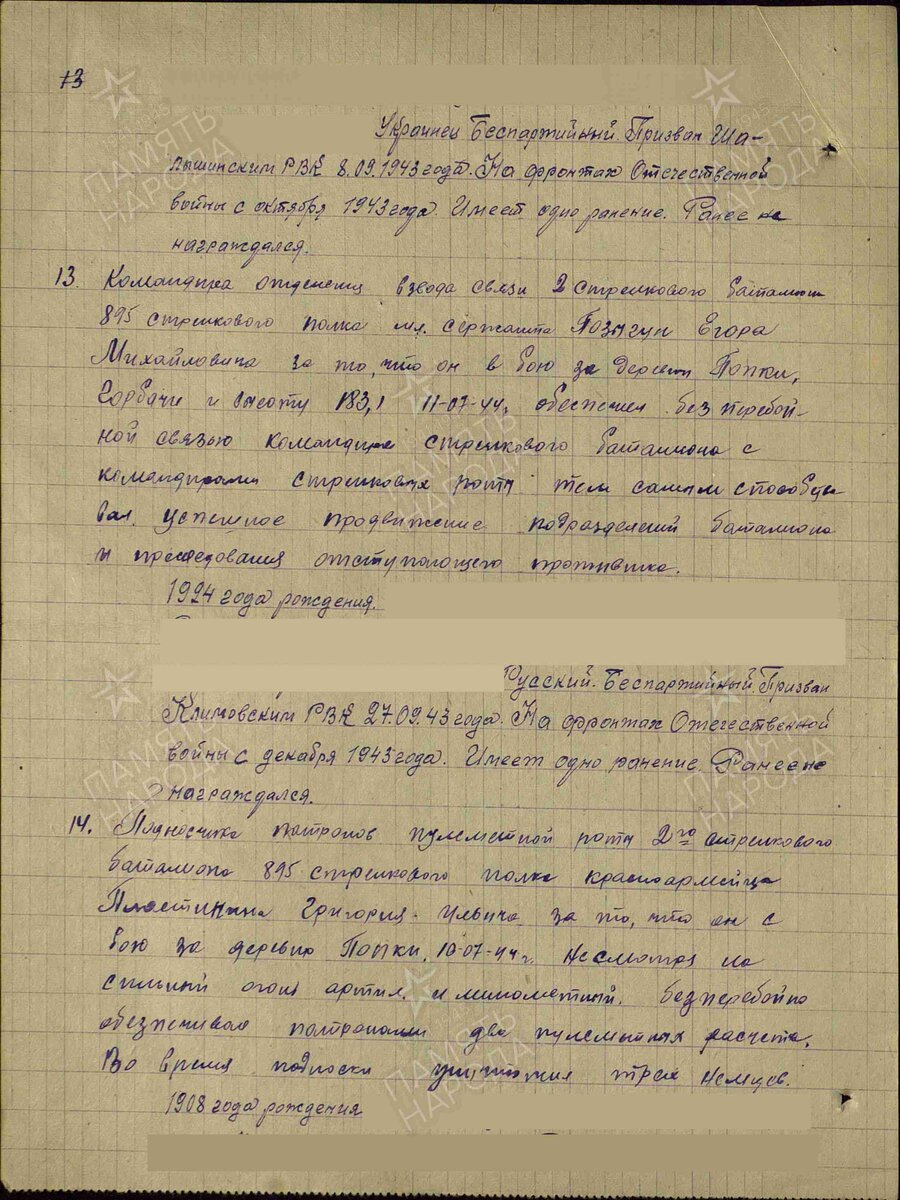 13
Украинец Беспартийный. Призван Ша-
лышинским РВК 8.09.1943 года. На фронтах Отечественной
войны с октября 1943 года. Имеет одно ранение. Ранее не
награждался.
13. Командира отделения взвода связи 2 стрелкового батальона
895 стрелкового полка мл. сержанта Егора
Михайловича за то, что он в бою за деревни Попки,
Горбачи и высоту 183,1 11-07-44г. обеспечил безперебой-
ной связью командира стрелкового баталиона с
командирами стрелковых роты тем самым способство
вал успешное продвижение подразделений баталиона
и преследования отступающего противника.
1924 года рождения.
Русский. Беспартийный Призван
Климовским РВК 27.09.43 года. На фронтах Отечественной
войны с декабря 1943 года. Имеет одно ранение. Ранее не
награждался.
14. Подносчика патронов пулеметной роты 2го стрелкового
баталиона 895 стрелкового полка красноармейца
Пластинина Григория Ильича за то, что он в
бою за деревню Попки, 10-07-44г. Несмотря на
сильный огонь артил. и минометный. безперебойно
обезпечивал патронами два пулеметных расчета.
Во время подноски уничтожил трех немцев.
1908 года рождения
ПАМЯТЬ
НАРОДА